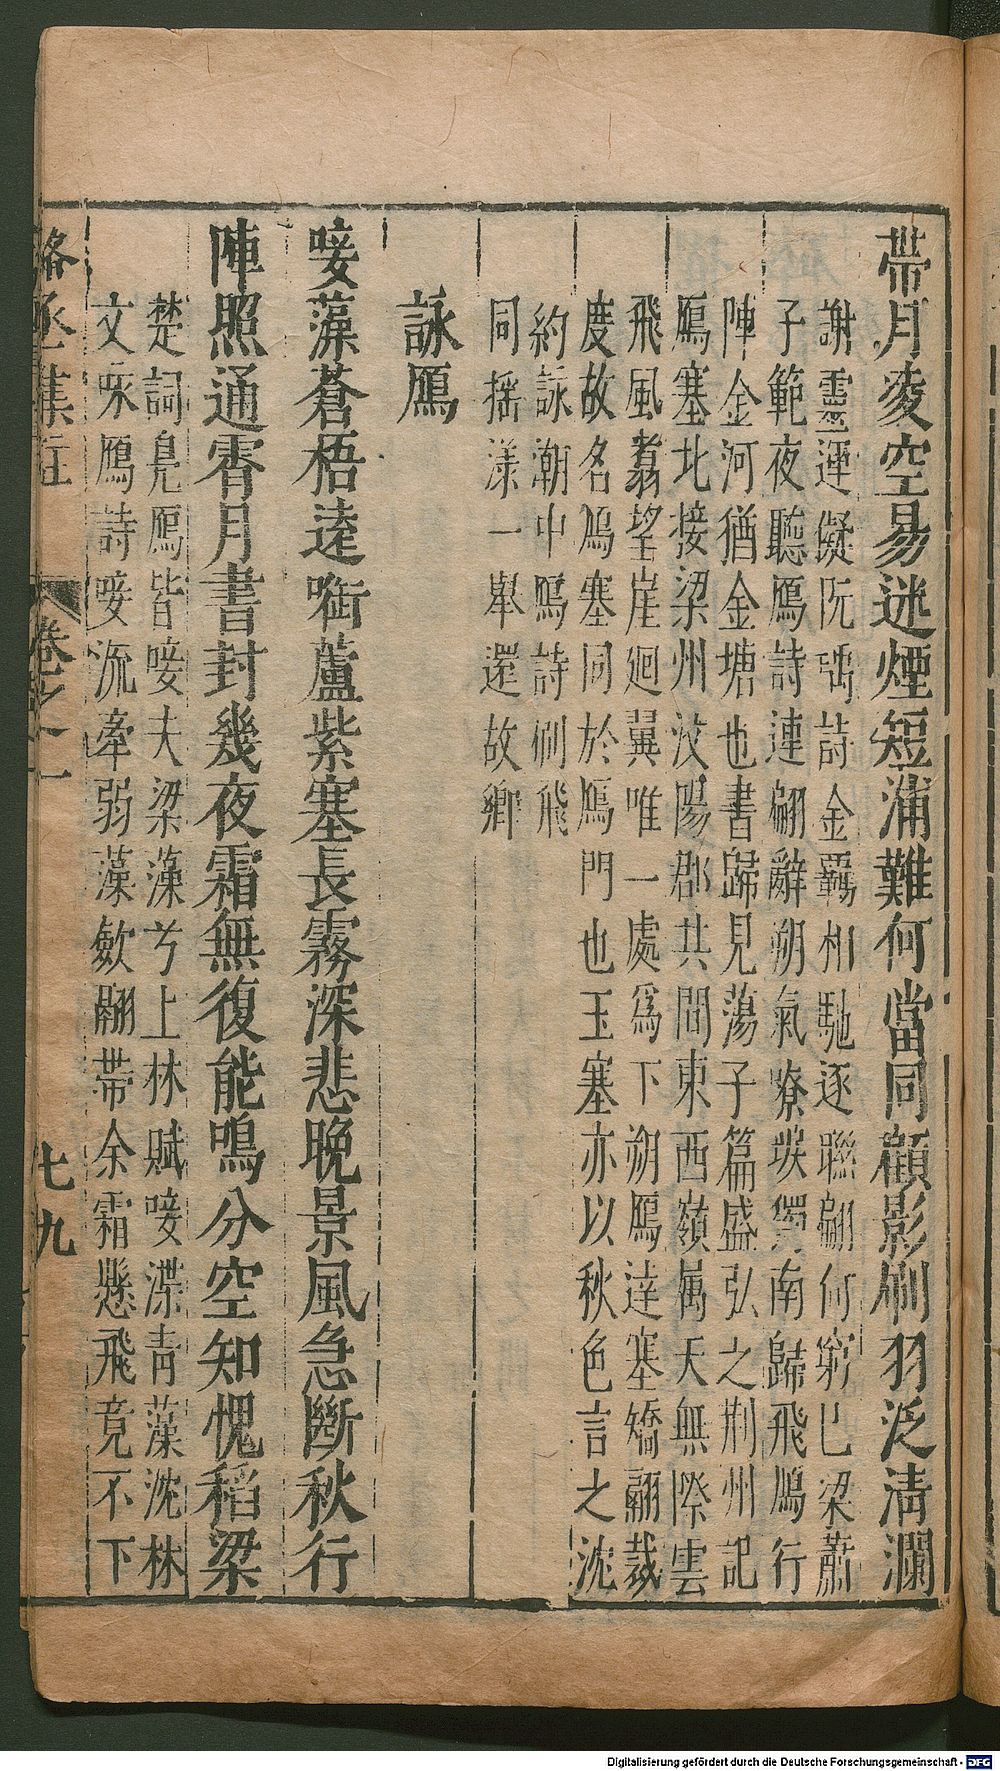 帶月凌空易迷煙短蒲難何當同顧影刷羽泛清瀾
謝靈運儗阮瑀詩金羈相馳逐聯翩何窮已梁蕭
子範夜聽鴈詩連翩辭朔氣嘹唳獨南歸飛鴈行
陣金河猶金塘也書歸見蕩子篇盛弘之荆州記
鴈塞北接梁州汶陽郡其間東西嶺属天無際雲
飛風翥望崖迴翼唯一處爲下朔鴈達塞矯翮裁
度故名鴈塞同於鴈門也玉塞亦以秋色言之沈
約詠湖中鴈詩刷飛
同摇漾一舉還故鄉
詠鴈
唼藻蒼梧遠啣蘆紫塞長霧深悲晚景風急斷秋行
陣照通霄月書封幾夜霜無復能鳴分空知愧稻梁
楚詞鳧鴈皆唼夫梁藻兮上林賦唼渫青藻沈林
文咏鴈詩唼流牽弱藻歛翮帶余霜懸飛竟不下
駱丞集註 卷之一 七九
Digitalisierung gefördert durch die Deutsche Forschungsgemeinschaft - DFG